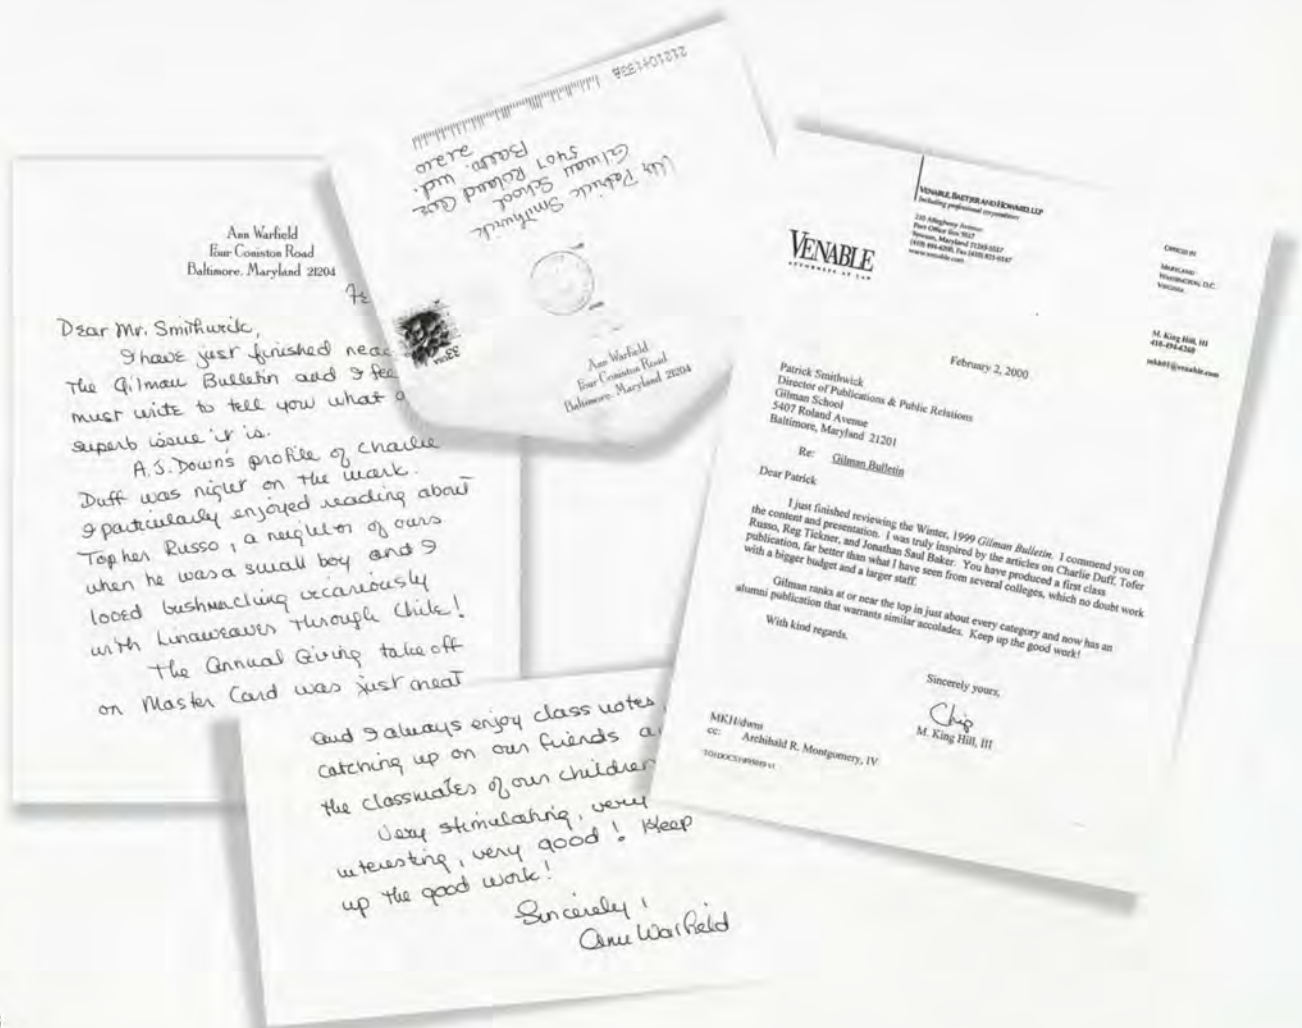 Ann Warfield
Four Coniston Road
Baltimore, Maryland 21204
Dear Mr. Smithwick,
I have just finished
The Gilman Bulletin and I
must write to tell you what
superb issue it is.
A.J. Down's profile of Charlie
Duff was right on the mark.
I particularly enjoyed reading about
Topher Russo, a neighbor of ours
when he was a small boy and I
loved bushwacking vicariously
with Linaweavers through Chile!
The Annual Giving take off
on Master Card was just neat
and I always enjoy class notes,
catching up on our friends
the classmates of our children
Very stimulating, very
interesting, very good! Keep
up the good work!
Sincerely,
Ann Warfield
212104133
Mr Patrick Smithwick
Gilman School
5407 Roland Ave
Balto. Md.
21210
33
USA
Ann Warfield
Four Coniston Road
Baltimore, Maryland 21204
VENABLE
ATTORNEYS AT LAW
VENABLE, BAETJER AND HOWARD, LLP
Including professional corporations
210 Allegheny Avenue
Post Office Box 5517
Towson, Maryland 21285-5517
(410) 494-6200, Fax (410) 821-0147
www.venable.com
OFFICES IN
MARYLAND
WASHINGTON, D.C.
VIRGINIA
M. King Hill, III
410-494-6260
mkh01@venable.com
February 2, 2000
Patrick Smithwick
Director of Publications & Public Relations
Gilman School
5407 Roland Avenue
Baltimore, Maryland 21201
Re: Gilman Bulletin
Dear Patrick
I just finished reviewing the Winter, 1999 Gilman Bulletin. I commend you on
the content and presentation. I was truly inspired by the articles on Charlie Duff, Tofer
Russo, Reg Tickner, and Jonathan Saul Baker. You have produced a first class
publication, far better than what I have seen from several colleges, which no doubt work
with a bigger budget and a larger staff.
Gilman ranks at or near the top in just about every category and now has an
alumni publication that warrants similar accolades. Keep up the good work!
With kind regards.
Sincerely yours,
Chip
M. King Hill, III
MKH/dwm
cc: Archibald R. Montgomery, IV